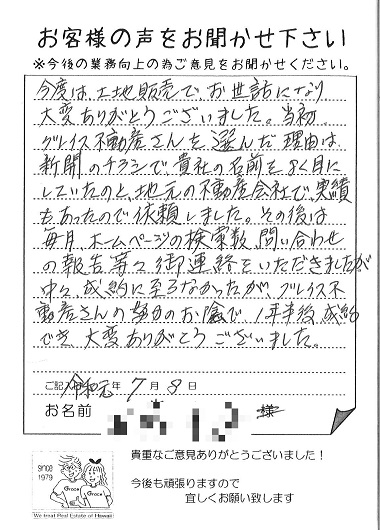 お客様の声をお聞かせ下さい
※今後の業務向上の為ご意見をお聞かせください。
今度は、土地販売でお世話になり
大変ありがとうございました。当初、
グレイス不動産さんを選んだ理由は
新聞のチラシで貴社の名前をよく目に
していたのと、地元の不動産会社で、実績
もあったので依頼しました。その後は
毎月、ホームページの検索数、問い合わせ
の報告等々御連絡をいただきましたが
中々、成約に至らなかったが、グレイス不
動産さんの努力のお陰で、1年半後、成約
でき、大変ありがとうございました。
ご記入日 令和元年 7月 8日
お名前 様
貴重なご意見ありがとうございました!
今後も頑張りますので
宜しくお願い致します
since
1979
Grace
Grace
We treat Real Estate of Hawaii